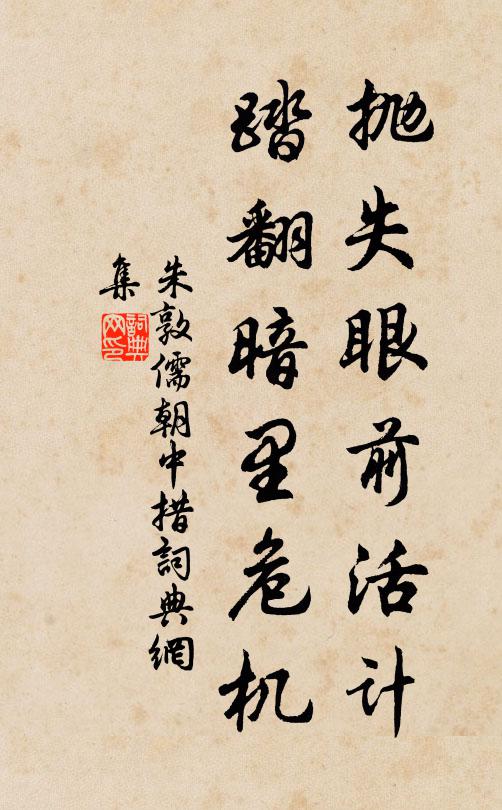 抛失眼前活计
踏翻暗里危机
朱敦儒朝中措詞典網
集
詞典网印